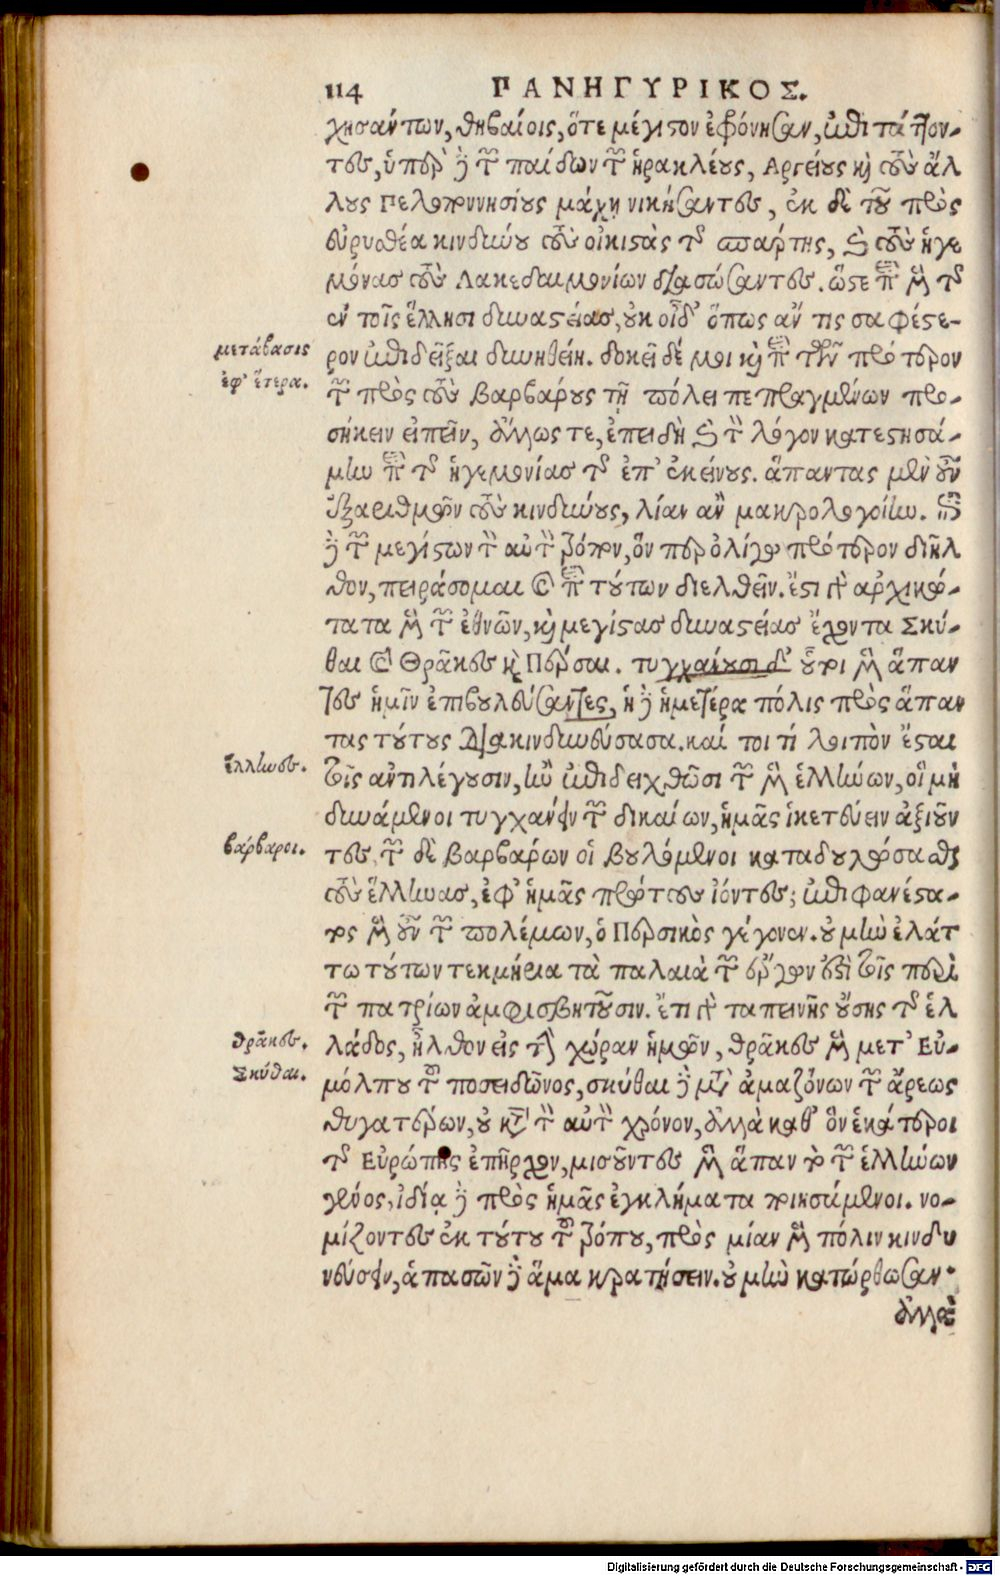 114 ΠΑΝΗΓΥΡΙΚΟΣ.
χησάντων, θηβαίοις, ὅτε μέγιστον ἐφρόνησαν, ἐπιτάττον-
τες, ὑπὲρ δὲ τῶν παίδων τῶν ἡρακλέους, Αργείους καὶ τοὺς ἄλ
λους Πελοποννησίους μάχῃ νικήσαντες, ἐκ δὲ τοῦ πρὸς
εὐρυσθέα κινδύνου τοὺς οἰκιστὰς τῆς σπάρτης, καὶ τοὺς ἡγε
μόνας τοὺς Λακεδαιμονίων διασώσαντες. ὥστε περὶ μὲν τῆς
ἐν τοῖς ἕλλησι δυναστείας, οὐκ οἶδ' ὅπως ἄν τις σαφέστε-
μετάβασις
ρον ἐπιδεῖξαι δυνηθείη. δοκεῖ δέ μοι καὶ περὶ τῶν πρότερον
ἐφ' ἕτερα.
τῶν πρὸς τοὺς βαρβάρους τῇ πόλει πεπραγμένων προ-
σήκειν εἰπεῖν, ἄλλως τε, ἐπειδὴ καὶ τὸν λόγον κατεστησά-
μην περὶ τῆς ἡγεμονίας τῆς ἐπ' ἐκείνους. ἅπαντας μὲν οὖν
ἐξαριθμῶν τοὺς κινδύνους, λίαν ἂν μακρολογοίην. ἐπὶ
δὲ τῶν μεγίστων τὸν αὐτὸν τρόπον, ὃν περ ὀλίγῳ πρότερον διῆλ
θον, πειράσομαι καὶ περὶ τούτων διελθεῖν. ἔστι γὰρ ἀρχικώ-
τατα μὲν τῶν ἐθνῶν, καὶ μεγίστας δυναστείας ἔχοντα Σκύ-
θαι καὶ Θρᾷκες καὶ Πέρσαι. τυγχάνουσι δ' οὗτοι μὲν ἅπαν
τες ἡμῖν ἐπιβουλεύσαντες, ἡ δὲ ἡμετέρα πόλις πρὸς ἅπαν
τας τούτους διακινδυνεύσασα. καί τοι τί λοιπὸν ἔσται
ἕλληνες.
τοῖς ἀντιλέγουσιν, ἢν ἐπιδειχθῶσι τῶν μὲν ἑλλήνων, οἱ μὴ
δυνάμενοι τυγχάνειν τῶν δικαίων, ἡμᾶς ἱκετεύειν ἀξιοῦν
βάρβαροι.
τες, τῶν δὲ βαρβάρων οἱ βουλόμενοι καταδουλώσασθαι
τοὺς ἕλληνας, ἐφ' ἡμᾶς πρώτους ἰόντες; ἐπιφανέστα-
τος μὲν οὖν τῶν πολέμων, ὁ Περσικὸς γέγονεν. οὐ μὴν ἐλάτ
τω τούτων τεκμήρια τὰ παλαιὰ τῶν ἔργων ἐστὶ τοῖς περὶ
τῶν πατρίων ἀμφισβητοῦσιν. ἔτι γὰρ ταπεινῆς οὔσης τῆς ἑλ
Θρᾷκες.
λάδος, ἦλθον εἰς τὴν χώραν ἡμῶν, θρᾷκες μὲν μετ' Εὐ-
Σκύθαι.
μόλπου τοῦ ποσειδῶνος, σκύθαι δὲ μετὰ ἀμαζόνων τῶν ἄρεως
θυγατέρων, οὐ κατὰ τὸν αὐτὸν χρόνον, ἀλλὰ καθ' ὃν ἑκάτεροι
τῆς Εὐρώπης ἐπῆρχον, μισοῦντες μὲν ἅπαν τὸ τῶν ἑλλήνων
γένος, ἰδίᾳ δὲ πρὸς ἡμᾶς ἐγκλήματα ποιησάμενοι. νο-
μίζοντες ἐκ τούτου τοῦ τρόπου, πρὸς μίαν μὲν πόλιν κινδυ
νεύσειν, ἁπασῶν δὲ ἅμα κρατήσειν. οὐ μὴν κατώρθωσαν.
ἀλλὰ
Digitalisierung gefördert durch die Deutsche Forschungsgemeinschaft - DFG